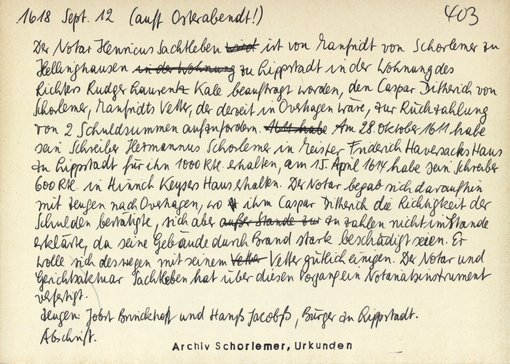 1618 Sept. 12 (auff Osterabendt!) 403
Der Notar Henricus Sachtleben wird ist von Manfridt von Schorlemer zu
Hellinghausen in der Wohnung zu Lippstadt in der Wohnung des
Richters Rudger Laurentz Kale beauftragt worden, den Caspar Ditherich von
Schorlemer, Manfridts Vetter, der derzeit in Overhagen wäre, zur Rückzahlung
von 2 Schuldsummen aufzufordern. 1611 habe Am 28. Oktober 1611 habe
sein Schreiber Hermannus Schorlemer in Meister Friderich Haversacks Haus
zu Lippstadt für ihn 1000 Rtl erhalten, am 15. April 1614 habe sein Schreiber
600 Rtl. in Hinrich Keysers Haus erhalten. Der Notar begab sich daraufhin
mit Zeugen nach Overhagen, wo ihm Caspar Ditherich die Richtigkeit der
Schulden bestätigte, sich aber außer Stande zur zu zahlen nicht im Stande
erklärte, da seine Gebäude durch Brand stark beschädigt seien. Er
wolle sich deswegen mit seinem Vetter Vetter gütlich einigen. Der Notar und
Gerichtsaktuar Sachtleben hat über diesen Vorgang ein Notariatsinstrument
verfertigt.
Zeugen: Jobst Brinckhoff und Hanß Jacobß, Bürger zu Lippstadt.
Abschrift.
Archiv Schorlemer, Urkunden